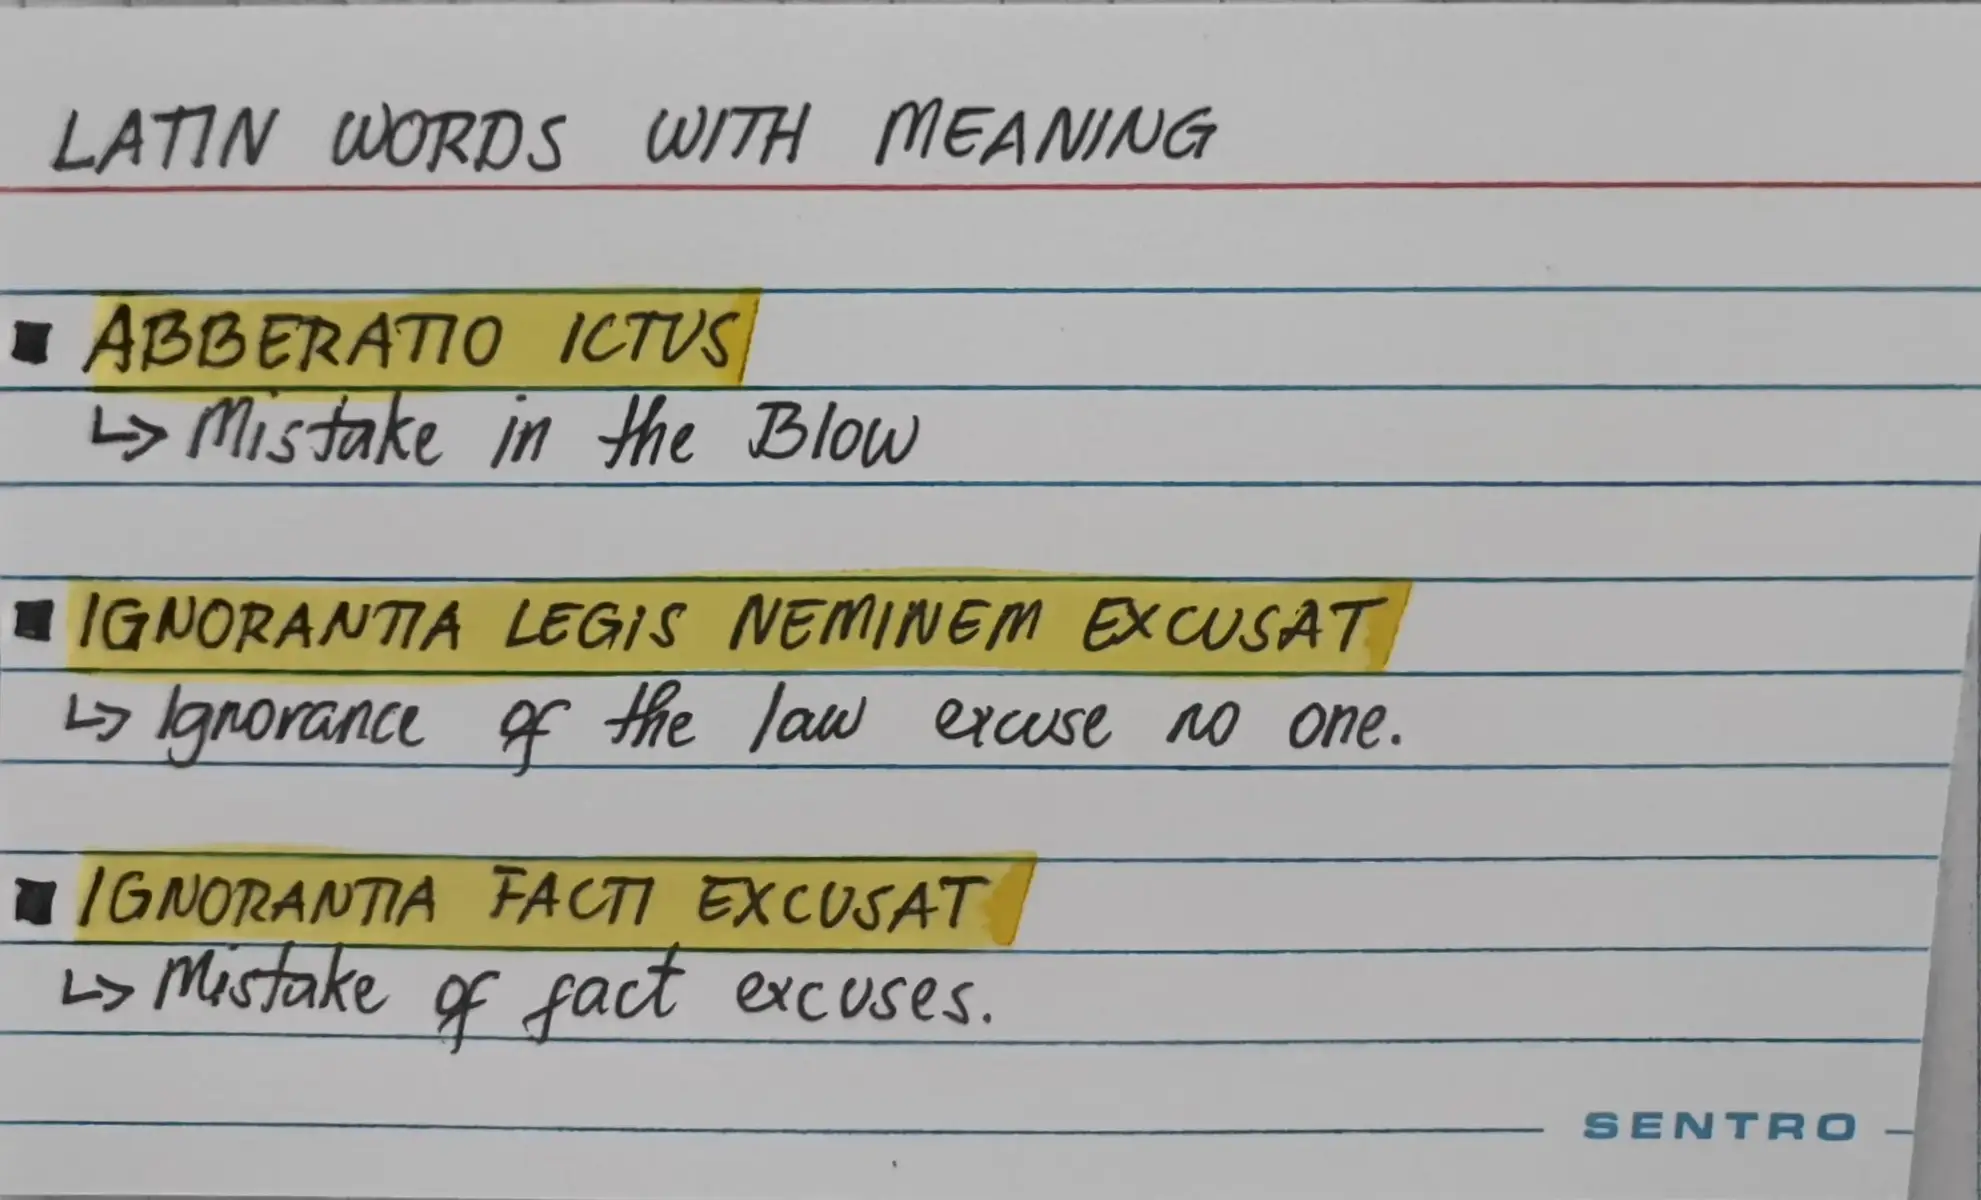 LATIN WORDS WITH MEANING
ABBERATIO ICTUS
↳ Mistake in the Blow
IGNORANTIA LEGIS NEMINEM EXCUSAT
↳ Ignorance of the law excuse no one.
IGNORANTIA FACTI EXCUSAT
↳ Mistake of fact excuses.
SENTRO